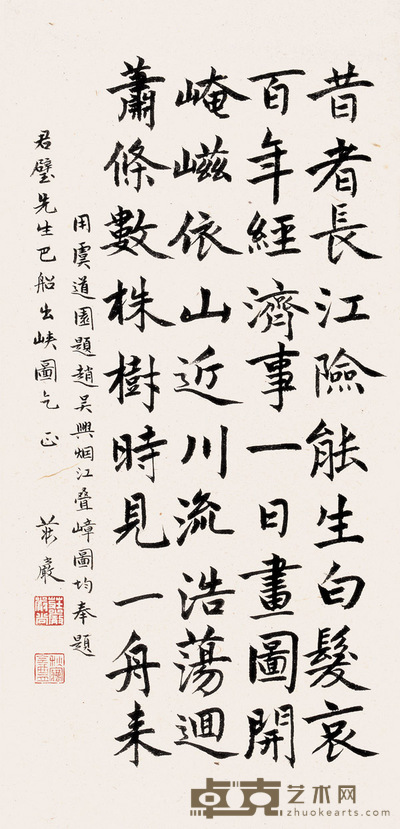 昔者長江險能生白髮哀
百年經濟事一日畫圖開
崦嵫依山近川流浩蕩迴
蕭條數株樹時見一舟来
用虞道園題趙吳興烟江叠嶂圖均奉題
君璧先生巴船出峽圖乞 正
莊嚴
卓克艺术网
zhuokearts.com